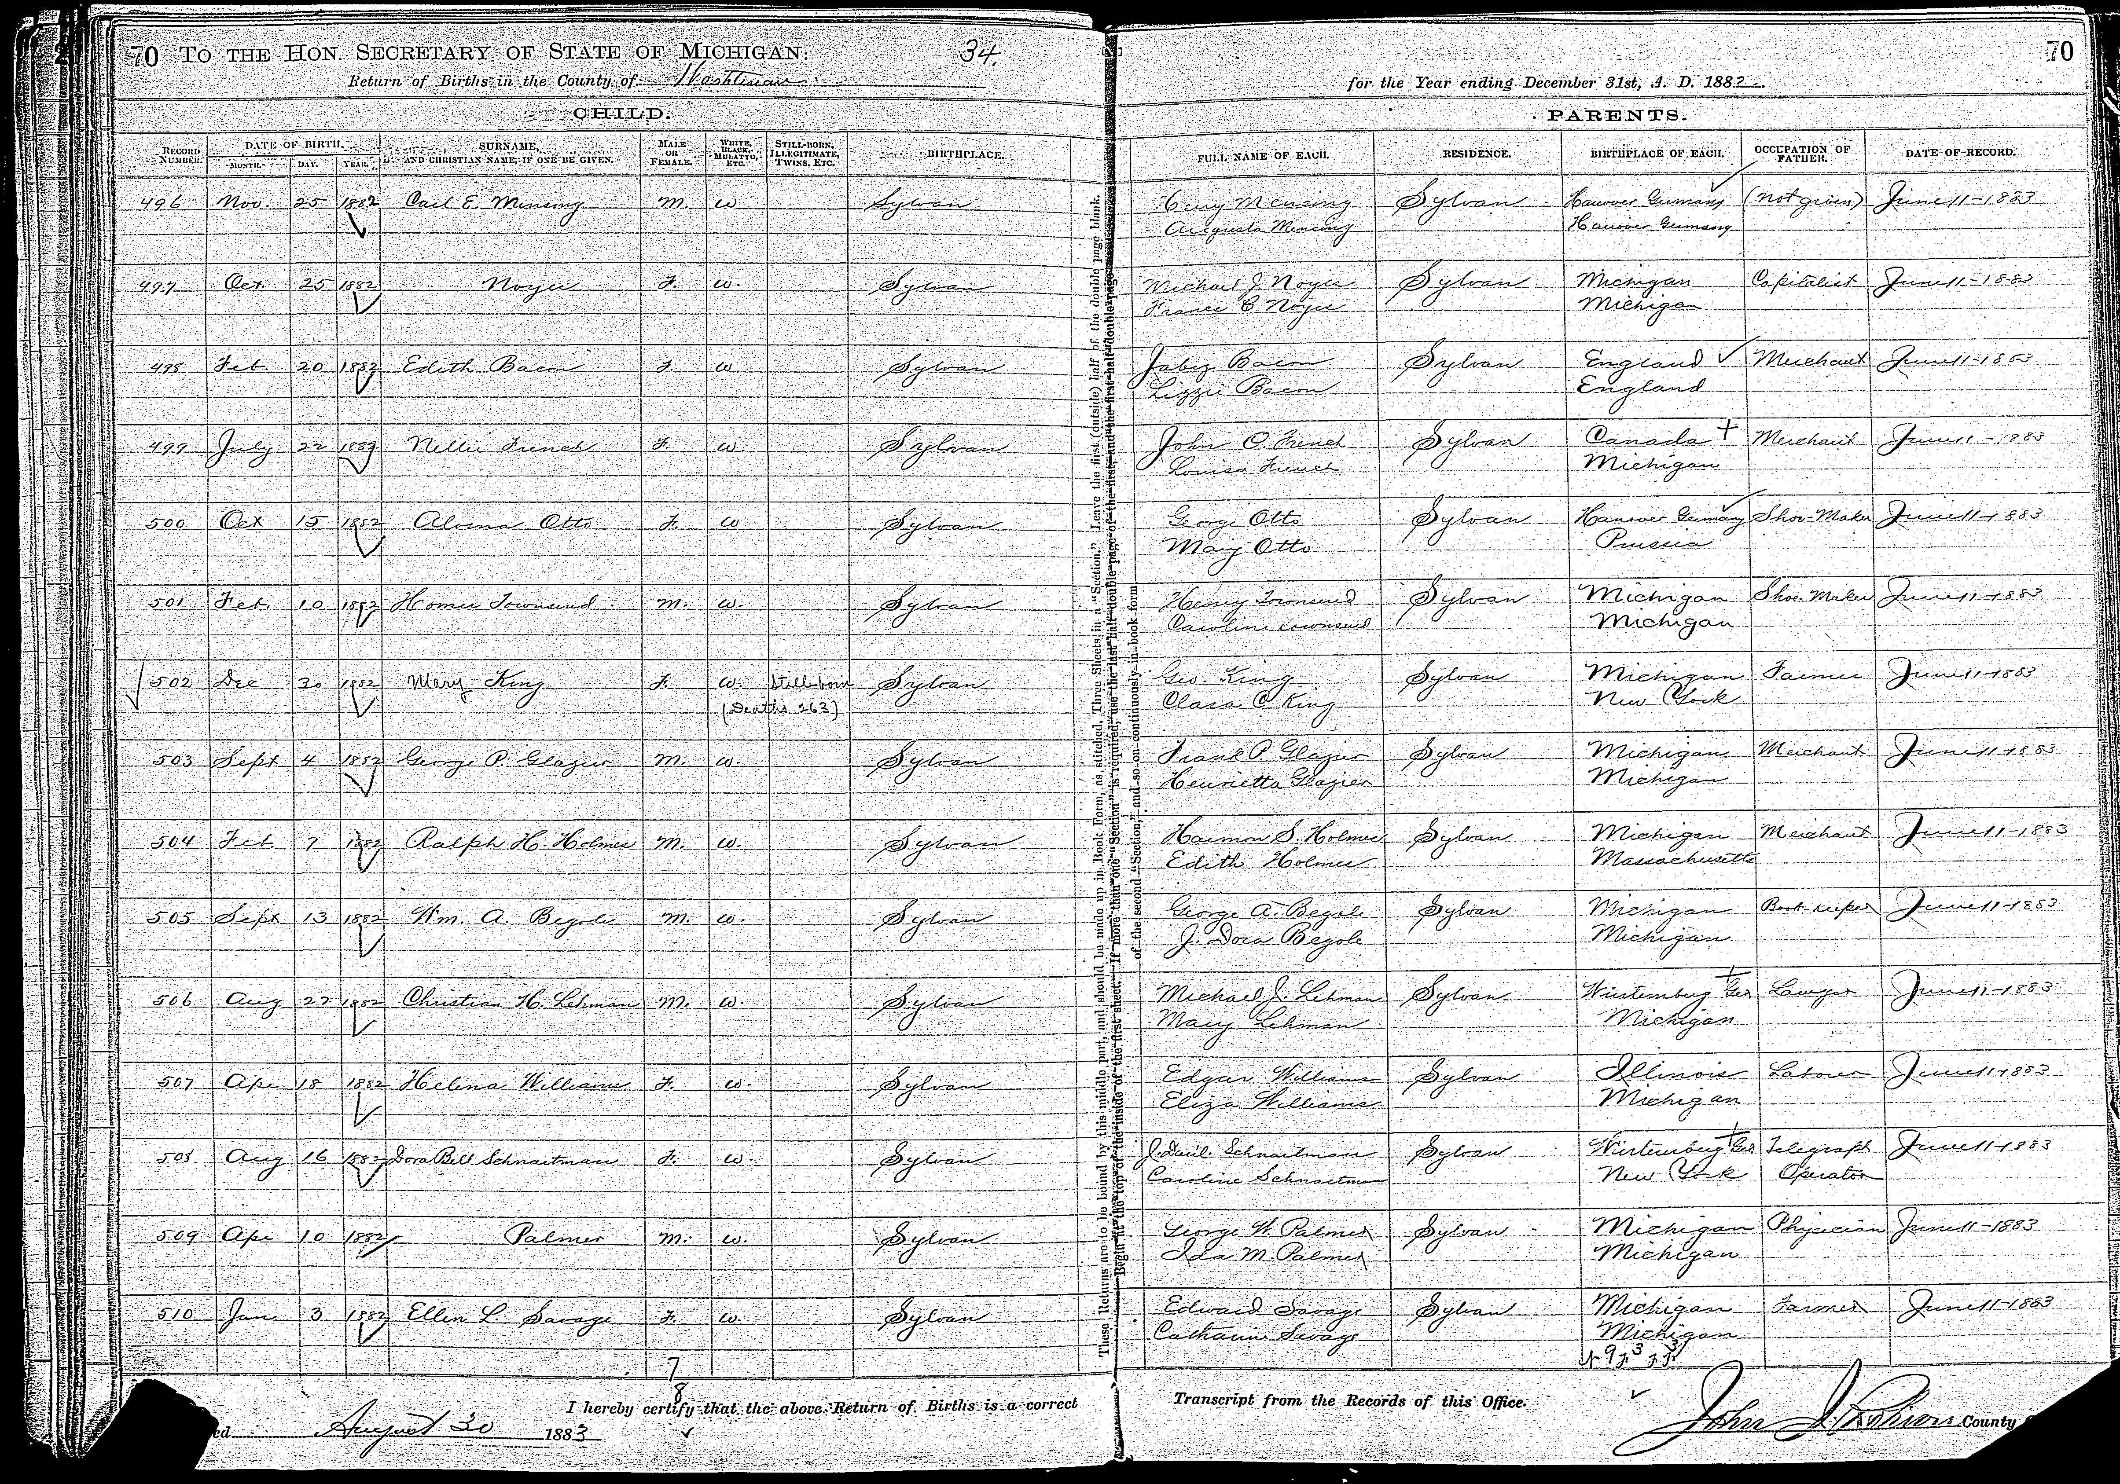 70 TO THE HON. SECRETARY OF STATE OF MICHIGAN: 34. 70
Return of Births in the County of Washtenaw for the Year ending December 31st, A. D. 1882.
CHILD. PARENTS.
RECORD NUMBER. DATE OF BIRTH. MONTH. DAY. YEAR. SURNAME, AND CHRISTIAN NAME, IF ONE BE GIVEN. MALE OR FEMALE. WHITE, BLACK, MULATTO, ETC. STILL-BORN, ILLEGITIMATE, TWINS, ETC. BIRTHPLACE. FULL NAME OF EACH. RESIDENCE. BIRTHPLACE OF EACH. OCCUPATION OF FATHER. DATE OF RECORD.
496 Nov. 25 1882 Carl E. Mensing M. W Sylvan Henry Mensing Sylvan Hanover Germany (Not given) June 11-1883
Augusta Mensing Hanover Germany
497 Oct. 25 1882 Noyes F. W Sylvan Michael J. Noyes Sylvan Michigan Capitalist June 11-1883
France E Noyes Michigan
498 Feb 20 1882 Edith Bacon F. W Sylvan Jabez Bacon Sylvan England Merchant June 11-1883
Lizzie Bacon England
499 July 22 1882 Nellie French F. W Sylvan John O. French Sylvan Canada + Merchant June 11-1883
Louisa French Michigan
500 Oct 15 1882 Alvena Otto F. W Sylvan George Otto Sylvan Hanover Germany Shoe-Maker June 11-1883
May Otto Prussia
501 Feb 10 1882 Homer Townsend M. W. Sylvan Henry Townsend Sylvan Michigan Shoe Maker June 11-1883
Caroline Townsend Michigan
502 Dec 30 1882 Mary King F. W. Still-born Sylvan Geo. King Sylvan Michigan Farmer June 11-1883
(Deaths 263) Clara C King New York
503 Sept 4 1882 George P. Glazier M. W. Sylvan Frank P. Glazier Sylvan Michigan Merchant June 11-1883
Henrietta Glazier Michigan
504 Feb 7 1882 Ralph H. Holmes M. W. Sylvan Harmon S. Holmes Sylvan Michigan Merchant June 11-1883
Edith Holmes Massachusetts
505 Sept 13 1882 Wm. A. Begole M. W. Sylvan George A. Begole Sylvan Michigan Book keeper June 11-1883
J. Dora Begole Michigan
506 Aug 27 1882 Christian H. Lehman M. W. Sylvan Michael J. Lehman Sylvan Wirtemburg Ger + Lawyer June 11-1883
Mary Lehman Michigan
507 Apr 18 1882 Helena Williams F. W. Sylvan Edgar Williams Sylvan Illinois Laborer June 11-1883
Eliza Williams Michigan
508 Aug 16 1882 Dora Bell Schnaitman F. W. Sylvan J. Schnaitman Sylvan Wirtemburg Ger + Telegraph June 11-1883
Caroline Schnaitman New York Operator
509 Apr 10 1882 Palmer M. W. Sylvan George W. Palmer Sylvan Michigan Physician June 11-1883
Ida M. Palmer Michigan
510 Jan 3 1882 Ellen L. Savage F. W. Sylvan Edward Savage Sylvan Michigan Farmer June 11-1883
Catharine Savage Michigan
7
8
I hereby certify that the above Return of Births is a correct Transcript from the Records of this Office.
ed August 30 1883 John J. Robison County
These Returns are to be bound by this middle part, and should be made up in Book Form, as stitched, Three Sheets in a "Section." Leave the first (outside) half of the double page blank.
Begin at the top of the inside of the first sheet. If more than one "Section" is required, use the last half double page of the first, and the first half double page
of the second "Section," and so on continuously in book form.